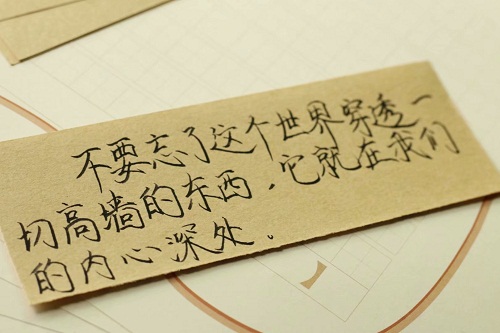 不要忘了这个世界穿透一
切高墙的东西,它就在我们
的内心深处。